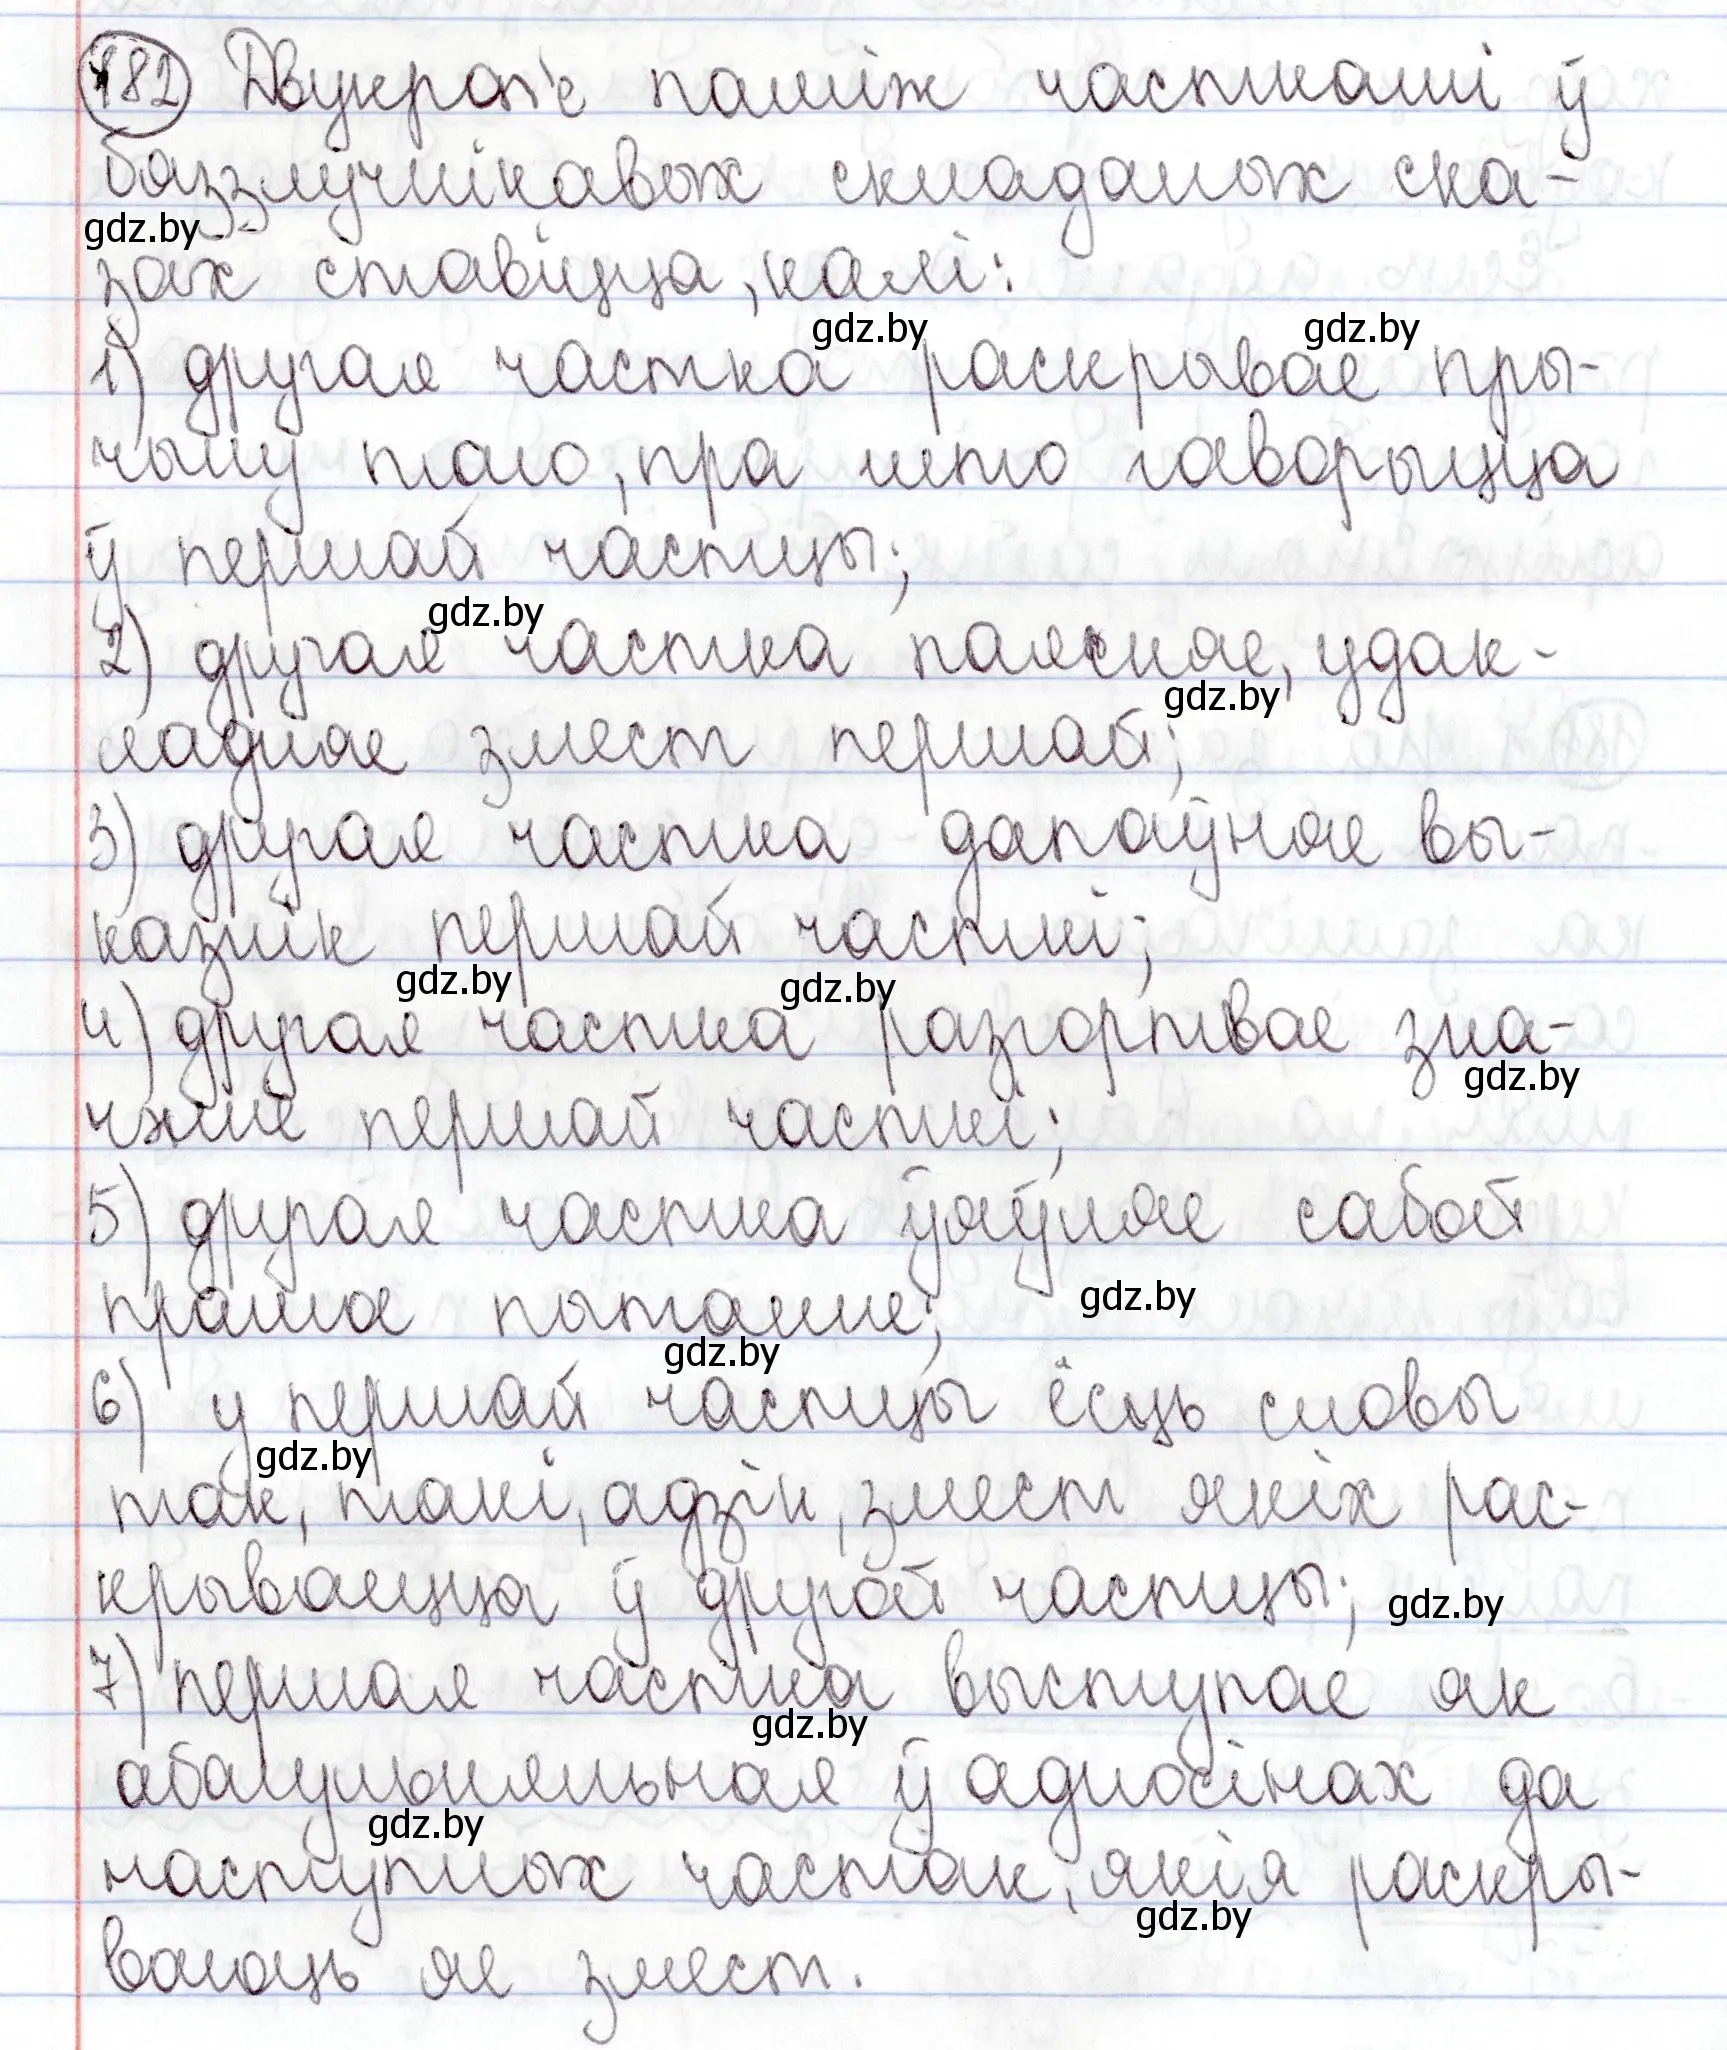 182 Двукроп'е паміж часткамі ў
бяззлучнікавых складаных ска-
gdz.by
зах ставіцца, калі:
gdz.by gdz.by
1) другая частка раскрывае пры-
чыну таго, пра што гаворыцца
ў першай частцы;
gdz.by
2) другая частка паясняе, удак-
gdz.by
ладняе змест першай;
3) другая частка дапаўняе вы-
казнік першай часткі;
gdz.by gdz.by
4) другая частка разгортвае зна-
gdz.by
чэнне першай часткі;
5) другая частка ўяўляе сабой
прамое пытанне;
gdz.by
gdz.by
6) у першай частцы ёсць словы
gdz.by
так, такі, адзін, змест якіх рас-
крываецца ў другой частцы;
gdz.by
7) першая частка выступае як
gdz.by
абагульняльная ў адносінах да
gdz.by
наступных частак, якія раскры-
gdz.by
ваюць яе змест.